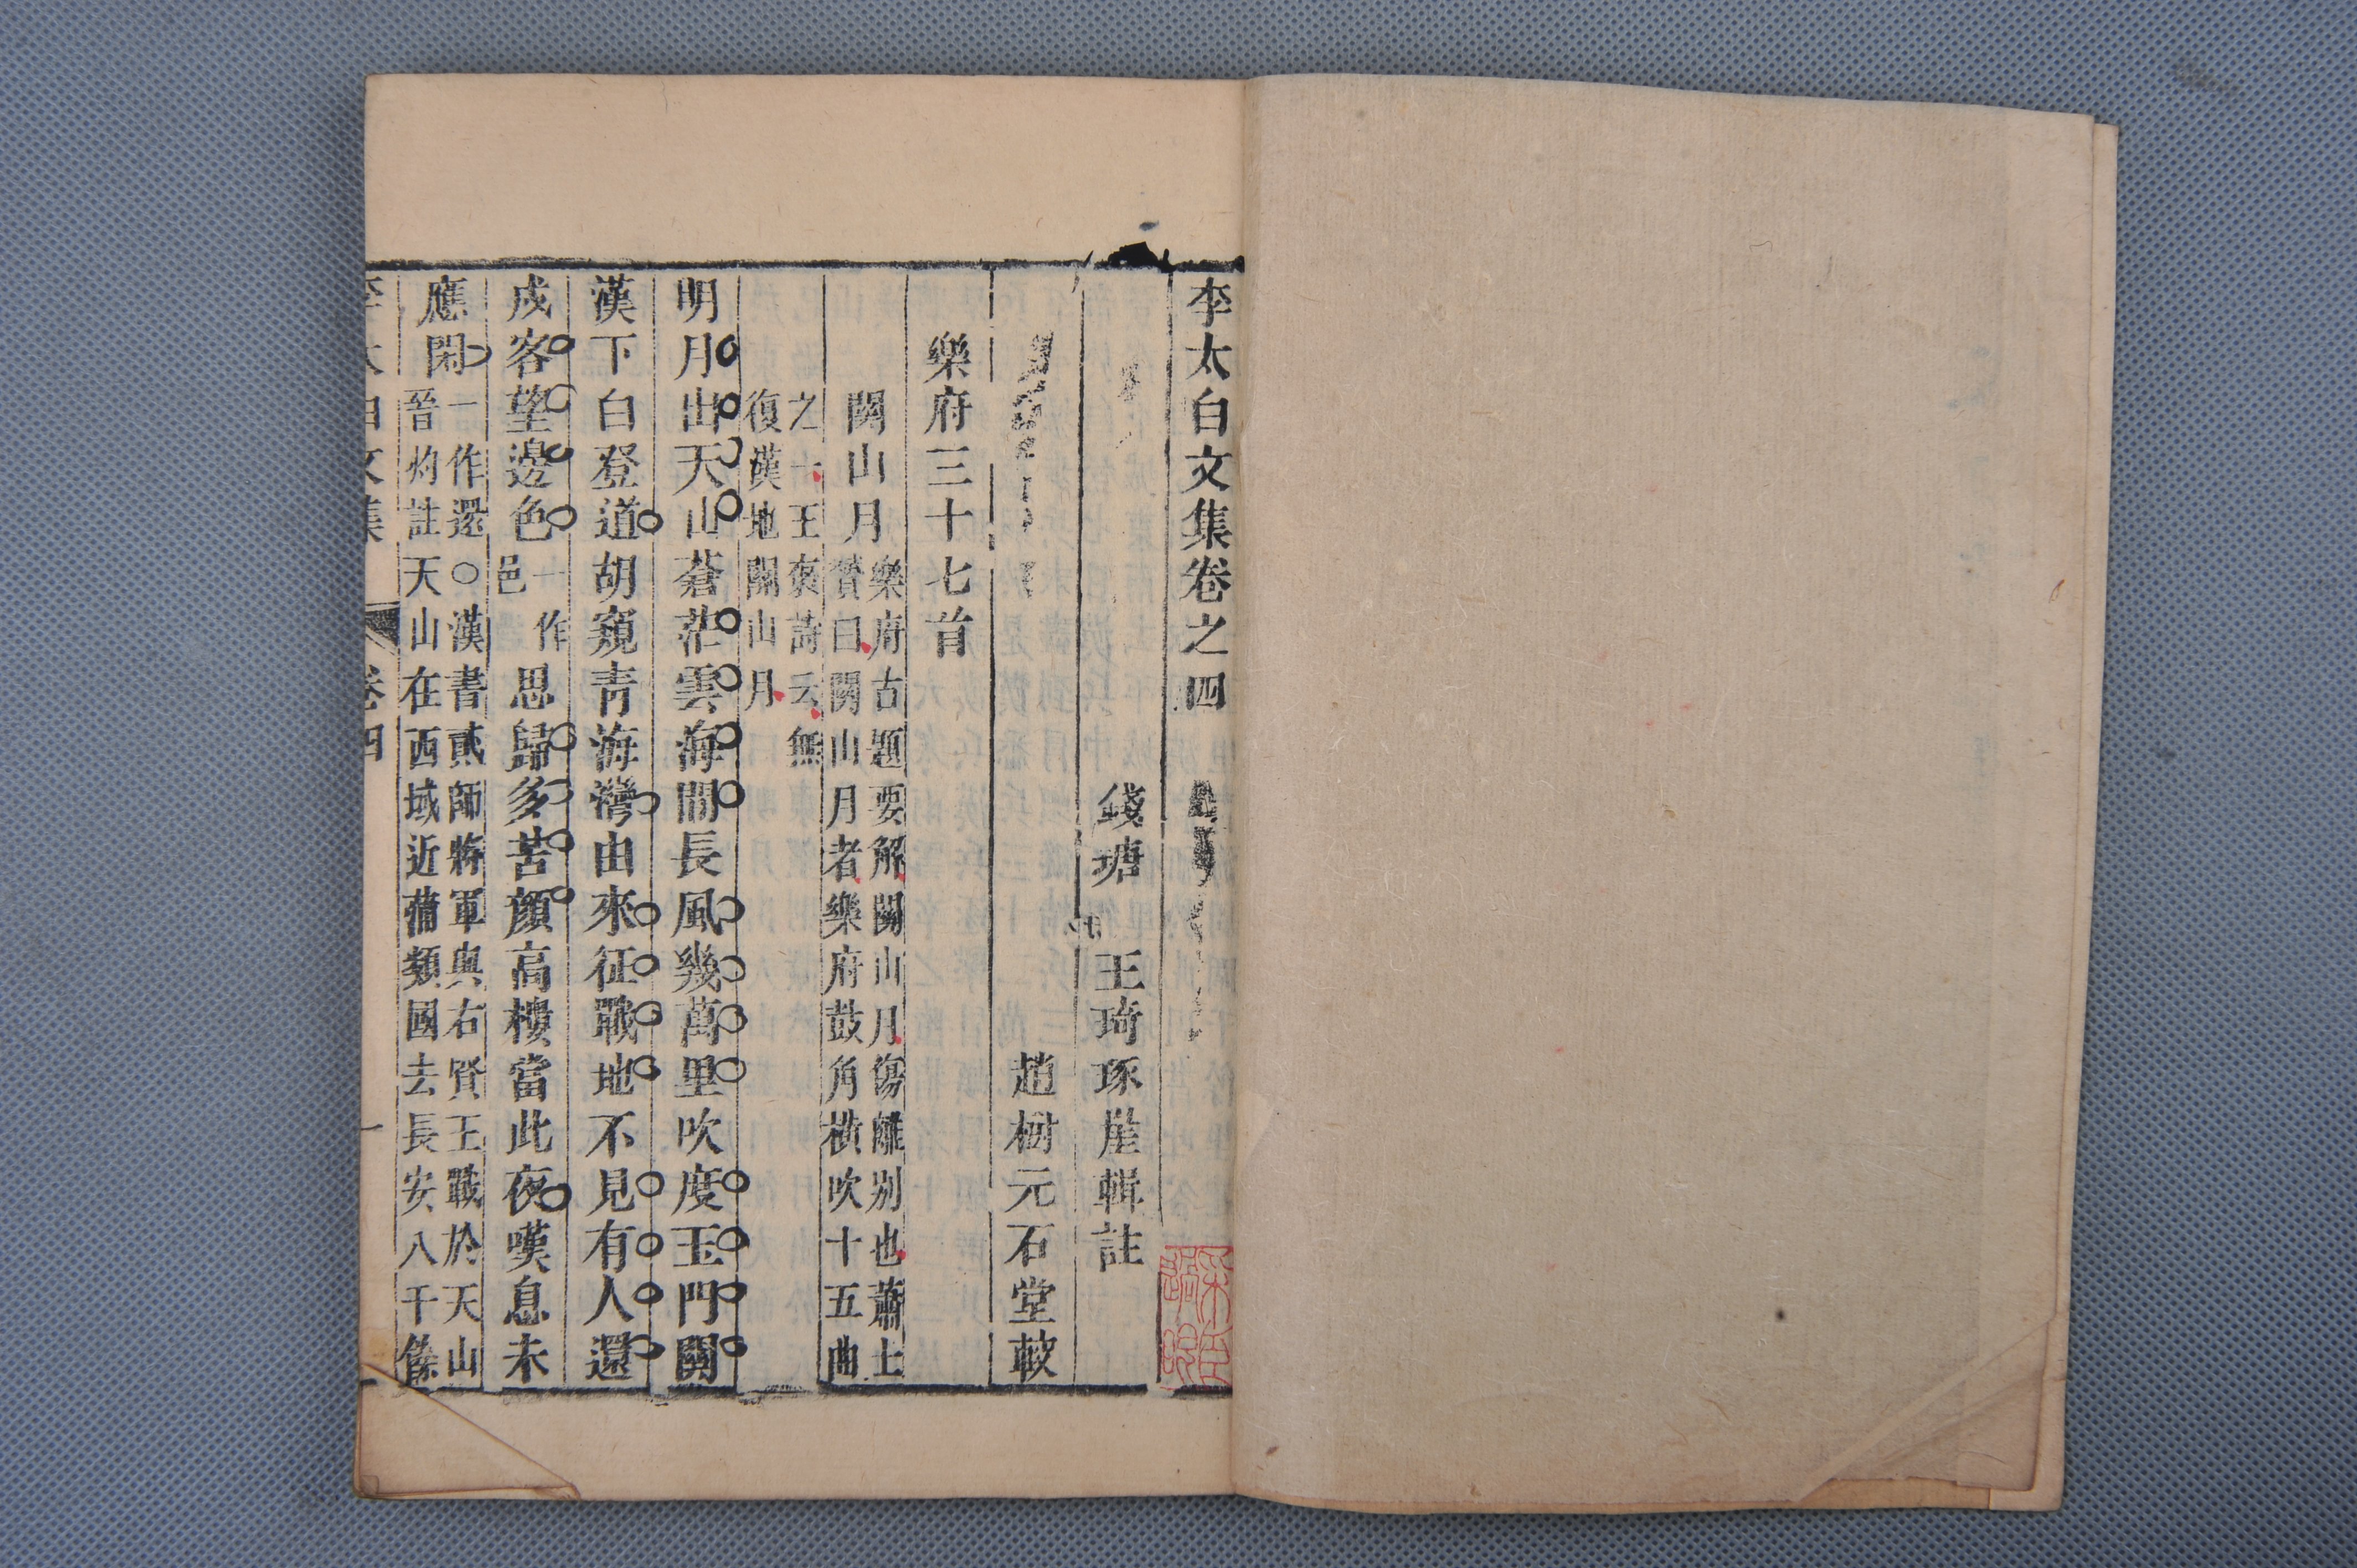 李太白文集卷之四
錢塘 王琦琢崖輯註
趙樹元石堂較
樂府三十七首
關山月
樂府古題要解關山月傷離別也蕭士
贇曰關山月者樂府鼓角橫吹十五曲
之一王褒詩云無
復漢地關山月
明月出天山蒼茫雲海間長風幾萬里吹度玉門關
漢下白登道胡窺青海灣由來征戰地不見有人還
戍客望邊色
一作
邑
思歸多苦顏高樓當此夜嘆息未
應閑
一作還○漢書貳師將軍與右賢王戰於天山
晉灼註天山在西域近蒲類國去長安八千餘
李太白文集 卷四 一